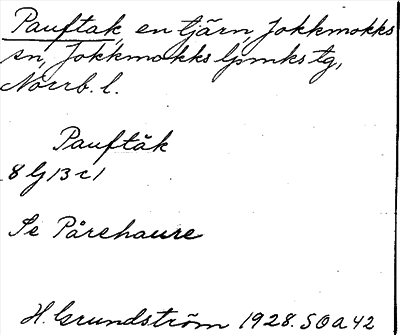 Pauftak, en tjärn, Jokkmokks
sn, Jokkmokks lpmks tg,
Norrb. l.
Pauftåk
8 G 13 c 1
Se Pårehaure
H. Grundström 1928. SOA 42